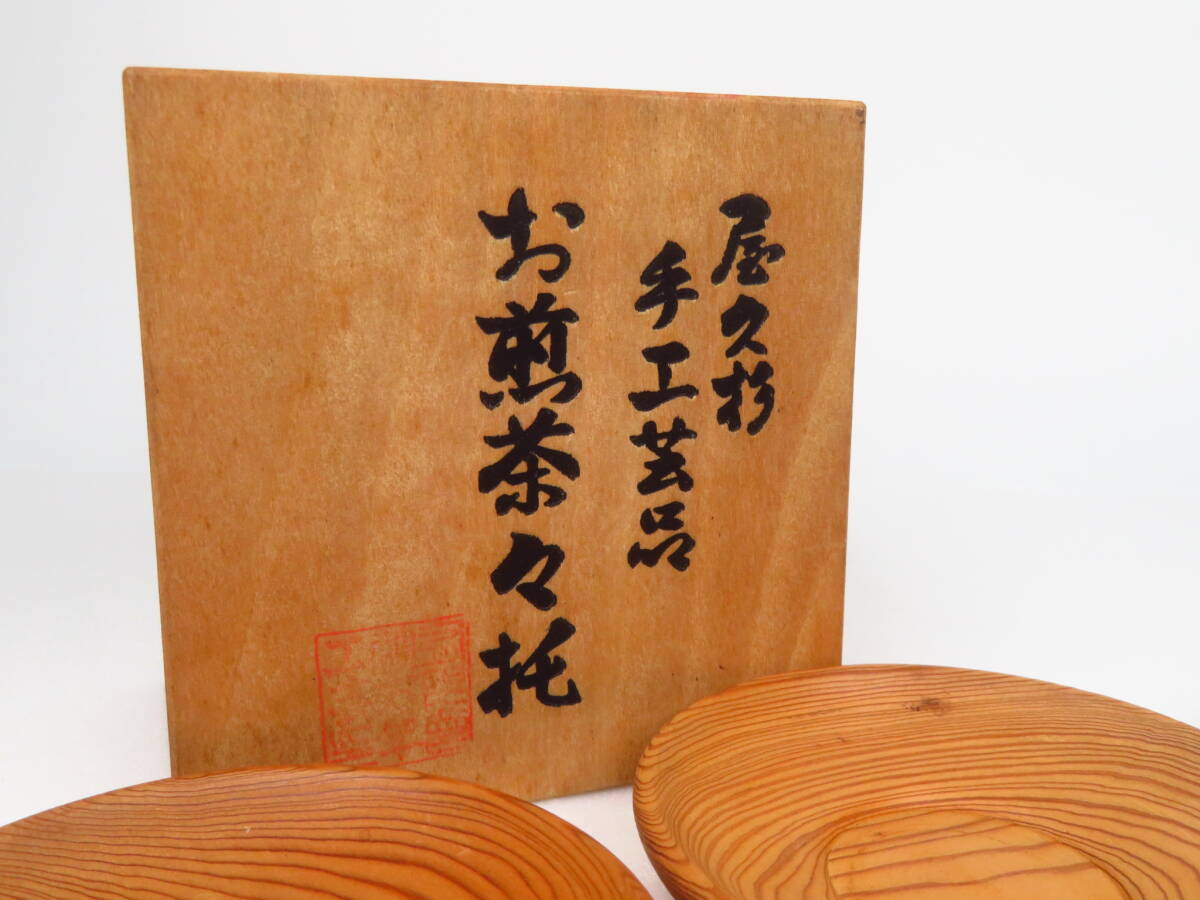 屋久杉
手工芸品
お煎茶々托